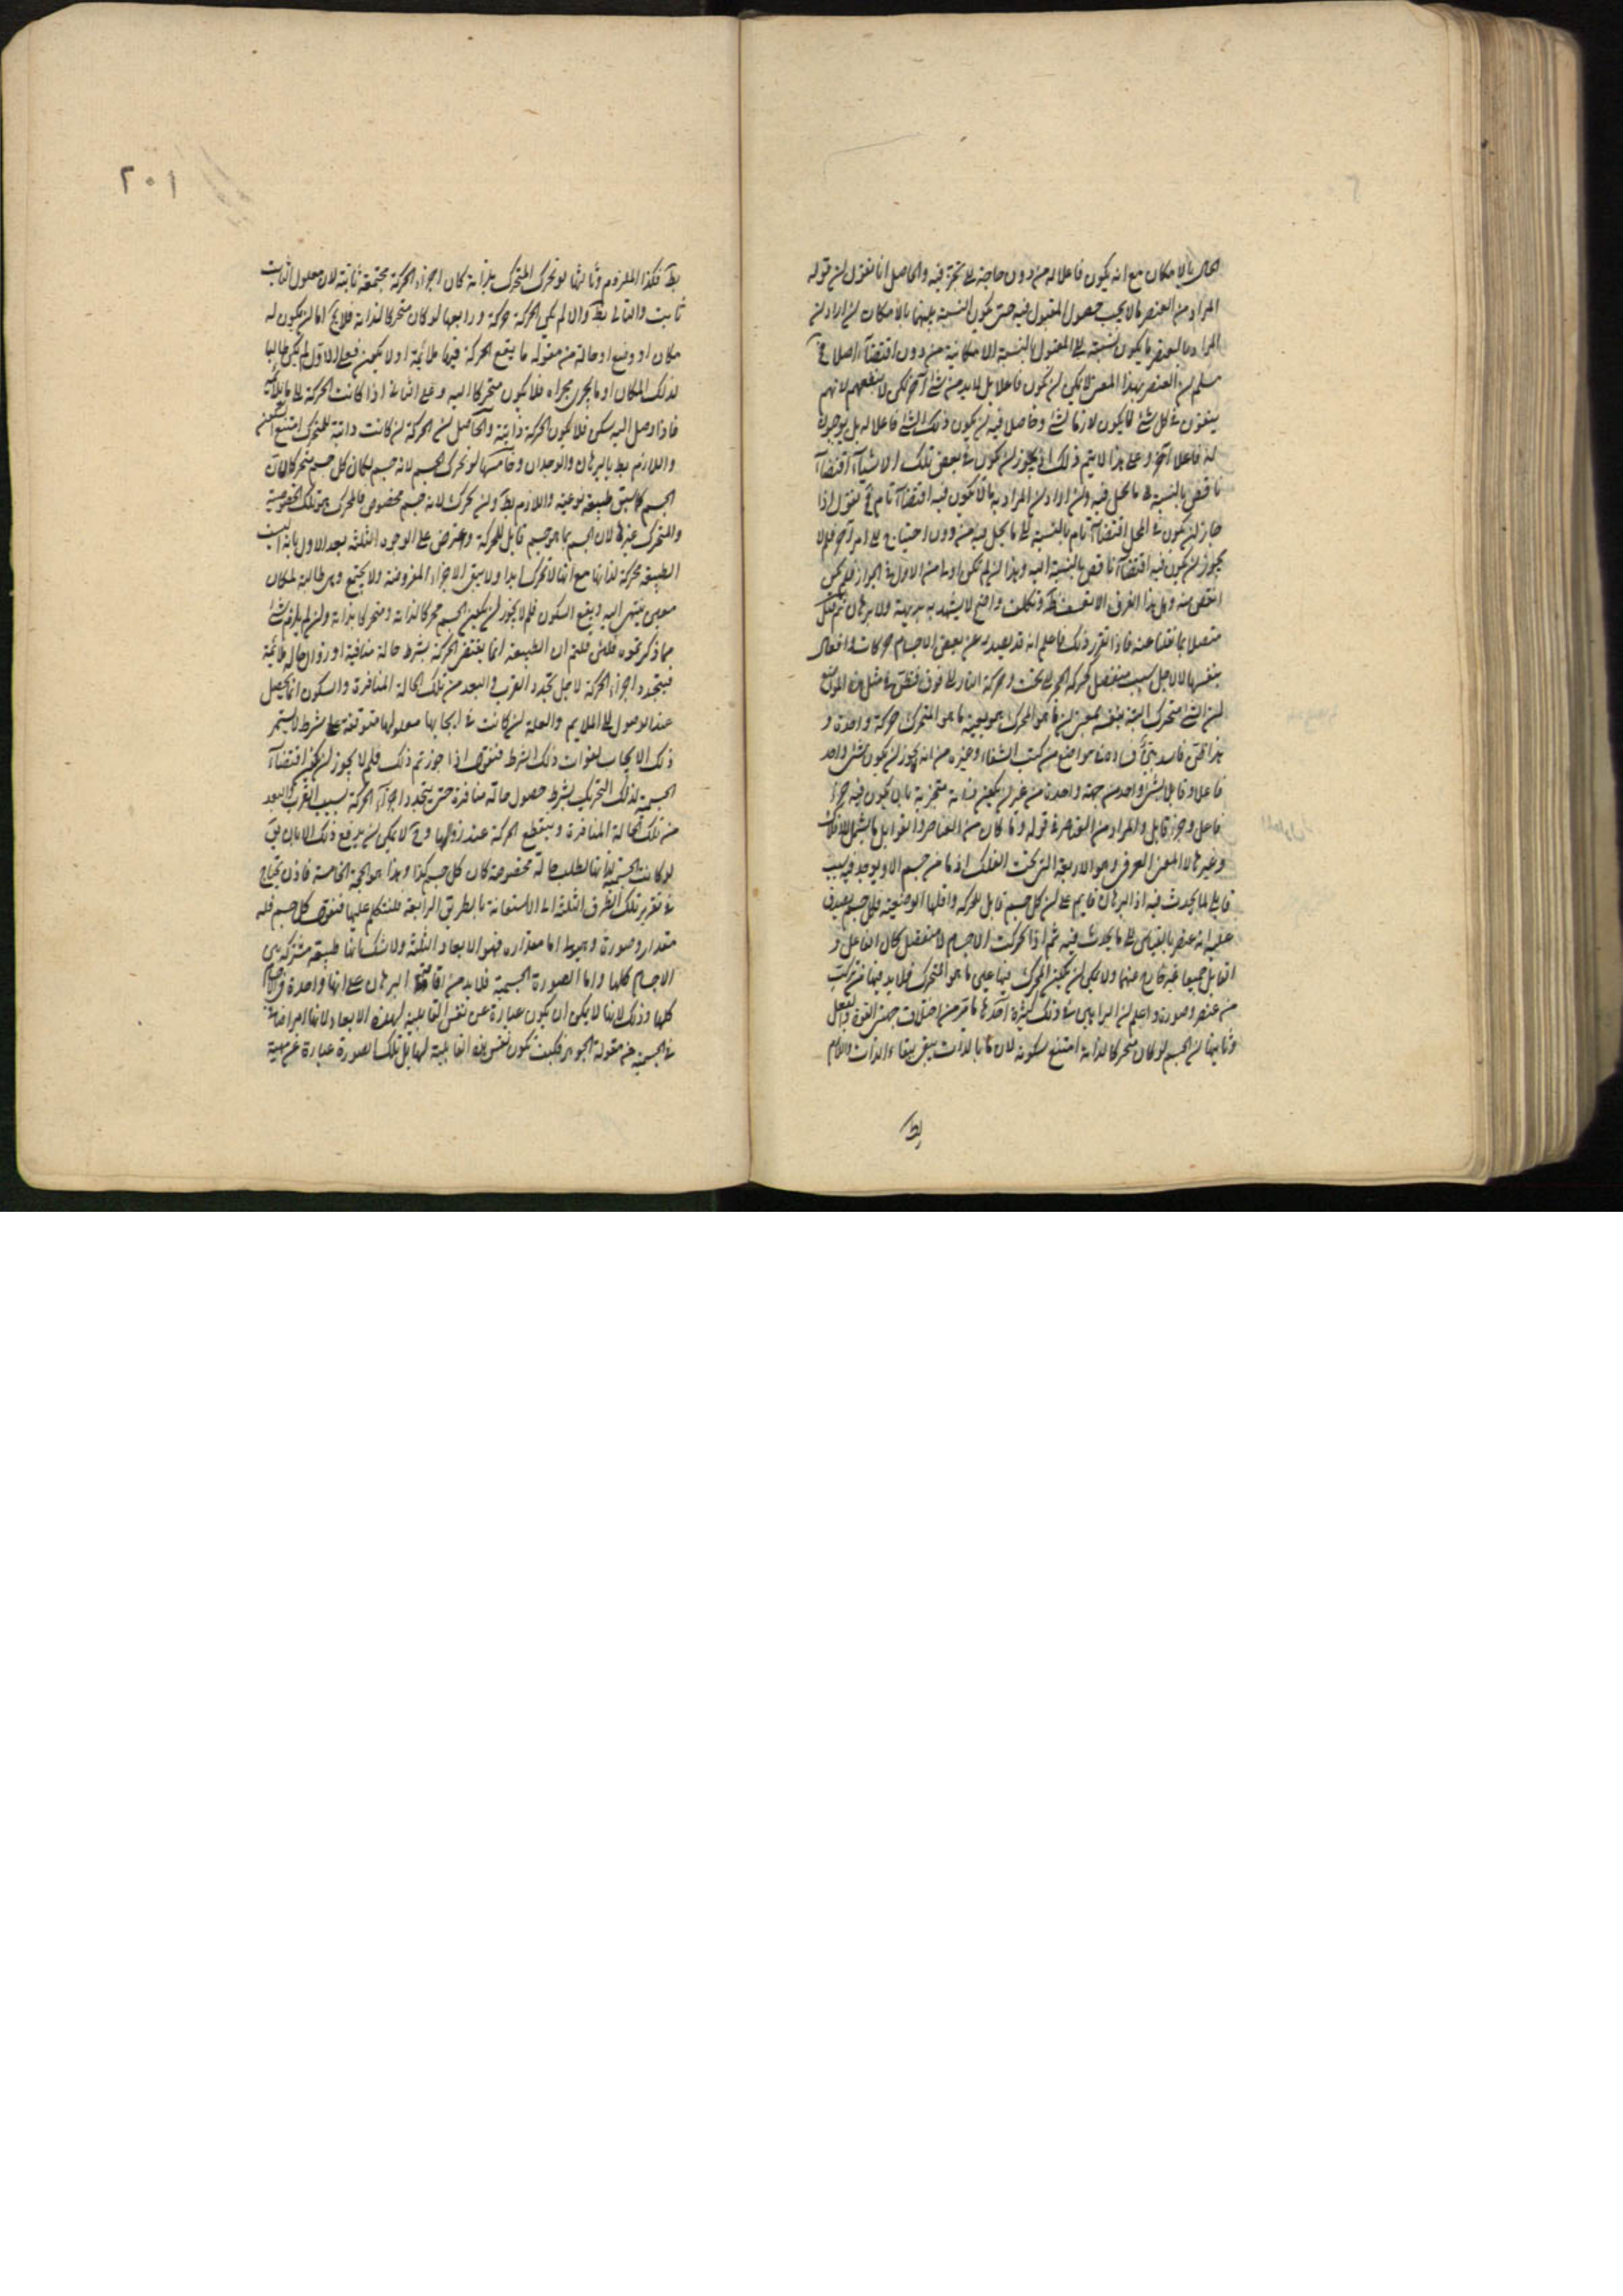 المحال بالامكان مع انه يكون فاعلا له من دون حاجة الى تجزّ فيه والحاصل انا نقول ان قوله
المراد من العنصر ما لا يجب حصول المقبول فيه حتى يكون النسبة بينهما بالامكان ان اراد ان
المراد بالعنصر ما يكون نسبته الى المقبول بالنسبة الامكانية من دون اقتضاء اصلا فح
مسلم ان العنصر بهذا المعنى لا يمكن ان يكون فاعلا بل لا بد من شئ آخر لكن لا ينفعهم لانهم
يبغون في كل شئ ما يكون لازما لشئ وحاصلا فيه ان يكون ذلك الشئ فاعلا له بل يوجبون
له فاعلا آخر وعلى هذا لا يتم ذلك اذ يجوز ان يكون في بعض تلك الاشياء اقتضاء
ناقص بالنسبة الى ما يحل فيه وان اراد ان المراد به ما لا يكون فيه اقتضاء تام فح نقول اذا
جاز ان يكون في المحل اقتضاء تام بالنسبة الى ما يحل فيه من دون احتياج الى امر آخر فلم لا
يجوز ان يكون فيه اقتضاء ناقص بالنسبة اليه وهذا ان لم يكن اولى من الاول في الجواز فلم يكن
انقص منه وهل هذا الفرق الا تعسف وتكلف واضح لا يشهد به بديهة ولا برهان ثم قال
متصلا بما نقلنا عنه فاذا تقرر ذلك فاعلم انه قد يصدر عن بعض الاجسام حركات وافعال
بنفسها لا لاجل سبب منفصل كحركة الحجر الى تحت وحركة النار الى فوق فنظن في مثل هذه المواضع
ان الشئ متحرك البتة بنفسه بمعنى ان ما هو المحرك هو بعينه ما هو المتحرك حركة واحدة و
هذا ظن فاسد بيّن فساده في مواضع من كتب الشفاء وغيره من انه لا يجوز ان يكون شئ واحد
فاعلا وقابلا لشئ واحد من جهة واحدة من غير ان يكون ذاته متجزية بان يكون فيه جزء
فاعل وجزء قابل والمراد من العناصر في قوله وما كان من العناصر والقوابل ما يشمل الافلاك
وغيرها لا المعنى العرفى وهو الاربعة التى تحت الفلك اذ ما من جسم الا ويوجد فيه سبب
قابلى لما يحدث فيه اذ البرهان قايم على ان كل جسم قابل للحركة واقلها الوضعية فكل جسم يصدق
عليه انه عنصر بالقياس الى ما يحدث فيه ثم اذا تحركت الاجسام لا منفصل كان الفاعل و
القابل جميعا غير خارج عنهما ولا يمكن ان يكون المحرك فيها عين ما هو المتحرك فلا بد فيها من تركب
من عنصر وصورة واعلم ان البراهين على ذلك كثيرة احدها ما مر من اختلاف جهتى القوة والفعل
وثانيها ان الجسم لو كان متحركا لذاته امتنع سكونه لان ما بالذات يبقى ببقاء الذات واللازم
بط
٢٠١
بط فكذا الملزوم وثالثها لو تحرك المتحرك بذاته كان اجزاء الحركة مجتمعة ثابتة لان معلول الثابت
ثابت والتالى بط والا لم يكن الحركة حركة ورابعها لو كان متحركا لذاته فلا يخ اما ان يكون له
مكان او وضع او حالة من مقولة ما يقع الحركة فيها ملائمة او لا يكون فعلى الاول لم يكن طالبا
لذلك المكان او ما يجرى مجراه فلا يكون متحركا اليه وعلى الثانى اذا كانت الحركة الى ما يلائمه
فاذا وصل اليه سكن فلا يكون الحركة ذاتية والحاصل ان الحركة ان كانت ذاتية للمتحرك امتنع السكون
واللازم بط بالبرهان والوجدان وخامسها لو تحرك الجسم لانه جسم لكان كل جسم متحركا لان
الجسم كما سبق طبيعة نوعية واللازم بط وان تحرك لانه جسم مخصوص فالمحرك هو تلك الخصوصية
والمتحرك غيرها لان الجسم بما هو جسم قابل للحركة واعترض على الوجوه الثلثة بعد الاول بانه اليست
الطبيعة محركة لذاتها مع انها لا تحرك ابدا ولا يبقى الاجزاء المفروضة ولا يجتمع وهى طالبة لمكان
معين ينتهى اليه ويقع السكون فلم لا يجوز ان يكون الجسم محركا لذاته ومتحركا بذاته وان لم يلزم شئ
مما ذكرتموه فلئن قلتم ان الطبيعة انما يقتضى الحركة بشرط حالة منافية او زوال حالة ملائمة
فيتجدد اجزاء الحركة لاجل تجدد القرب والبعد من تلك الحالة المنافرة والسكون انما يحصل
عند الوصول الى الملايم والعلة ان كانت في ايجابها معلولها متوقفة على شرط لا يستمر
ذلك الايجاب لفوات ذلك الشرط فنقول اذا جوزتم ذلك فلم لا يجوز ان يكون اقتضاء
الجسمية لذلك التحريك بشرط حصول حالة منافرة حتى يتجدد اجزاء الحركة بسبب القرب والبعد
من تلك الحالة المنافرة وينقطع الحركة عند زوالها وح لا يمكن ان يدفع ذلك الا بان يق
لو كانت الجسمية لذاتها لطلب حالة مخصوصة كان كل جسم كذا وهذا هو الحجة الخامسة فاذن يحتاج
في تقرير تلك الطرق الثلثة الى الاستعانة بالطريق الرابعة فلنتكلم عليها فنقول كل جسم فله
مقدار وصورة وهيولى اما مقداره فهو الابعاد الثلثة ولا شك انها طبيعة مشتركة بين
الاجسام كلها واما الصورة الجسمية فلا بد من اقامة البرهان على انها واحدة في الاجسام
كلها وذلك لانها لا يمكن ان يكون عبارة عن نفس القابلية لهذه الابعاد لانها امر اضافى
والجسمية من مقولة الجوهر فكيف يكون نفس هذه القابلية لها بل تلك الصورة عبارة عن مهية